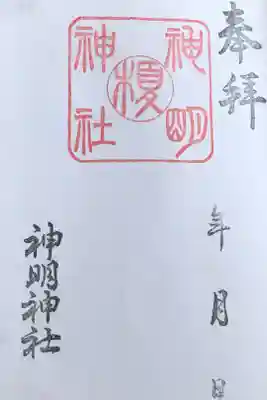 奉拝
神明
榎
神社
年 月 日
神明神社